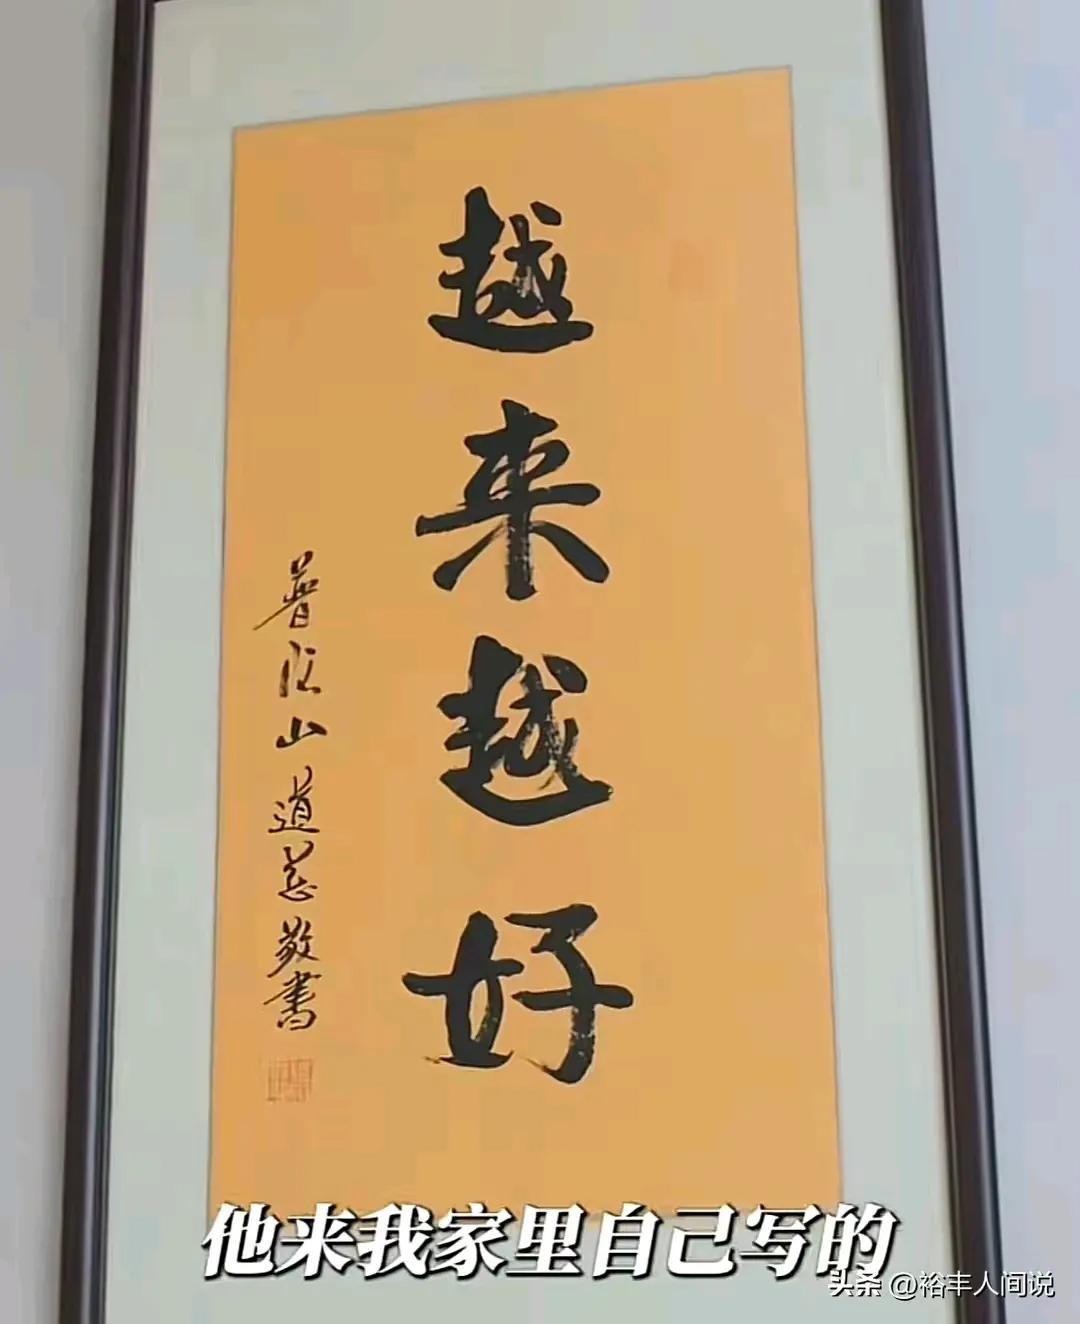 越来越好
普陀山道慈敬書
他来我家里自己写的
头条 @裕丰人间说